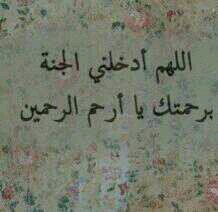 اللهم أدخلني الجنة
برحمتك يا أرحم الرحمين